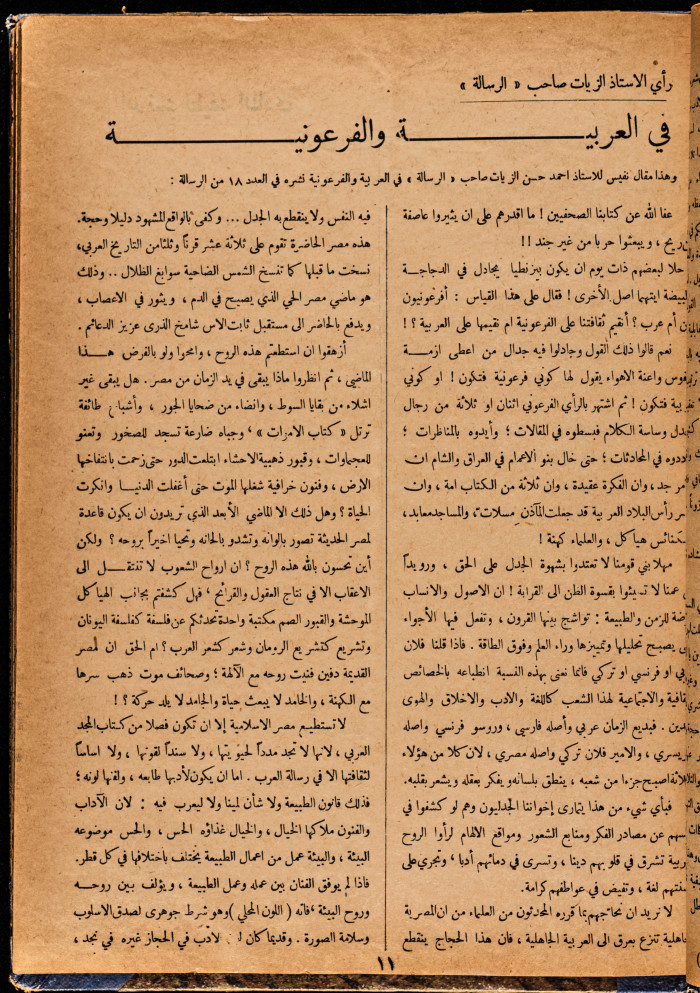 رأي الاستاذ الزيات صاحب « الرسالة »
في العربية والفرعونية
وهذا مقال نفيس للاستاذ احمد حسن الزيات صاحب « الرسالة » في العربية والفرعونية نشره في العدد ١٨ من الرسالة :
عفا الله عن كتابنا الصحفيين ! ما اقدرهم على ان يثيروا عاصفة
ريح ، ويبعثوا حربا من غير جند !!
حلا لبعضهم ذات يوم ان يكون بيزنطيا يجادل في الدجاجة
البيضة ايتهما اصل الأخرى ! فقال على هذا القياس : أفرعونيون
أم عرب ؟ أنقيم ثقافتنا على الفرعونية ام نقيمها على العربية ؟!
نعم قالوا ذلك القول وجادلوا فيه جدال من اعطى ازمة
فوس واعنة الاهواء يقول لها كوني فرعونية فتكون ! او كوني
بية فتكون ! ثم اشتهر بالرأي الفرعوني اثنان او ثلاثة من رجال
دل وساسة الكلام فبسطوه في المقالات ؛ وأيدوه بالمناظرات ؛
ددوه في المحادثات ؛ حتى خال بنو الأعمام في العراق والشام ان
مر جد ، وان الفكرة عقيدة ، وان ثلاثة من الكتاب امة ، وان
رأس البلاد العربية قد جعلت المآذن مسلات ، والمساجد معابد ،
كنائس هياكل ، والعلماء كهنة !
مهلا بني قومنا لا تعتدوا بشهوة الجدل على الحق ، ورويداً
عمنا لا تسيئوا بقسوة الظن الى القرابة ! ان الاصول والانساب
ضة للزمن والطبيعة : تواشج بينها القرون ، وتفعل فيها الأجواء
يصبح تحليلها وتمييزها وراء العلم وفوق الطاقة . فاذا قلنا فلان
بي او فرنسي او تركي فانما نعنى بهذه النسبة انطباعه بالخصائص
قافية والاجتماعية لهذا الشعب كاللغة والادب والاخلاق والهوى
دين . فبديع الزمان عربي وأصله فارسى ، وروسو فرنسي واصله
يسري ، والامير فلان تركي واصله مصري ، لان كلا من هؤلاء
ثلاثة اصبح جزءا من شعبه ، ينطق بلسانه ويفكر بعقله ويشعر بقلبه.
فبأي شيء من هذا يتمارى إخواننا الجدليون وهم لو كشفوا في
سهم عن مصادر الفكر ومنابع الشعور ومواقع الالهام لرأوا الروح
ربية تشرق في قلوبهم دينا ، وتسرى في دمائهم أدبا ، وتجري على
نتهم لغة ، وتفيض في عواطفهم كرامة.
لا نريد ان نحاجهم بما قرره المحدثون من العلماء من ان المصرية
اهلية تنزع بعرق الى العربية الجاهلية ، فان هذا الحجاج ينقطع
فيه النفس ولا ينقطع به الجدل ... وكفى بالواقع المشهود دليلا وحجة.
هذه مصر الحاضرة تقوم على ثلاثة عشر قرناً وثلثا من التاريخ العربي،
نسخت ما قبلها كما تنسخ الشمس الضاحية سوابغ الظلال .. وذلك
هو ماضي مصر الحي الذي يصبح في الدم ، ويثور في الاعصاب ،
ويدفع بالحاضر الى مستقبل ثابت الاس شامخ الذرى عزيز الدعائم .
أزهقوا ان استطعتم هذه الروح ، وامحوا ولو بالفرض هذا
الماضي ، ثم انظروا ماذا يبقى في يد الزمان من مصر . هل يبقى غير
اشلاء من بقايا السوط ، وانضاء من ضحايا الجور ، وأشباح طائفة
ترتل « كتاب الاموات » ، وجباه ضارعة تسجد للصخور وتعنو
للعجماوات ، وقبور ذهبية الاحشاء ابتلعت الدور حتى زحمت بانتفاخها
الارض ، وفنون خرافية شغلها الموت حتى أغفلت الدنيا وانكرت
الحياة ؟ وهل ذلك الا الماضي الأبعد الذى تريدون ان يكون قاعدة
لمصر الحديثة تصور بالوانه وتشدو بالحانه وتحيا اخيراً بروحه ؟ ولكن
أين تحسون بالله هذه الروح ؟ ان ارواح الشعوب لا تنتقل الى
الاعقاب الا في نتاج العقول والقرائح ، فهل كشفتم بجانب الهياكل
الموحشة والقبور الصم مكتبة واحدة تحدثكم عن فلسفة كفلسفة اليونان
وتشريع كتشريع الرومان وشعر كشعر العرب ؟ ام الحق ان لمصر
القديمة دفين فنيت روحه مع الآلهة ؛ وصحائف موت ذهب سرها
مع الكهنة ، والخامد لا يبعث حياة والجامد لا يلد حركة ؟ !
لا تستطيع مصر الاسلامية إلا ان تكون فصلا من كتاب المجد
العربي ، لانها لا تجد مدداً لحيويتها ، ولا سنداً لقوتها ، ولا اساساً
لثقافتها الا في رسالة العرب . اما ان يكون لأدبها طابعه ، ولفنها لونه ؛
فذلك قانون الطبيعة ولا شأن لمينا ولا ليعرب فيه : لان الآداب
والفنون ملاكها الخيال ، والخيال غذاؤه الحس ، والحس موضوعه
البيئة ، والبيئة عمل من اعمال الطبيعة يختلف باختلافها في كل قطر.
فاذا لم يوفق الفنان بين عمله وعمل الطبيعة ، ويؤلف بين روحه
وروح البيئة ، فاته ( اللون المحلي ) وهو شرط جوهرى لصدق الاسلوب
وسلامة الصورة . وقديما كان لون الأدب في الحجاز غيره في نجد ،
١١